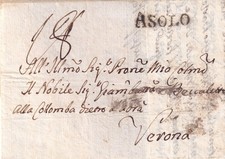 ASOLO
All' Illmo Sig.r Pron.e Mio Colmo
Il Nobile Sig.r
alla Colomba dietro
Verona